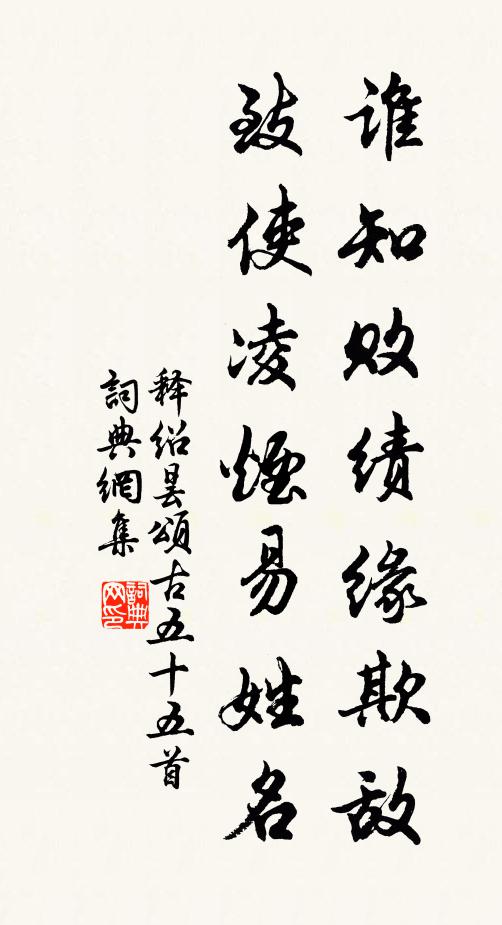 谁知败绩缘欺敌
致使凌烟易姓名
释绍昙颂古五十五首
詞典網集
詞典网印